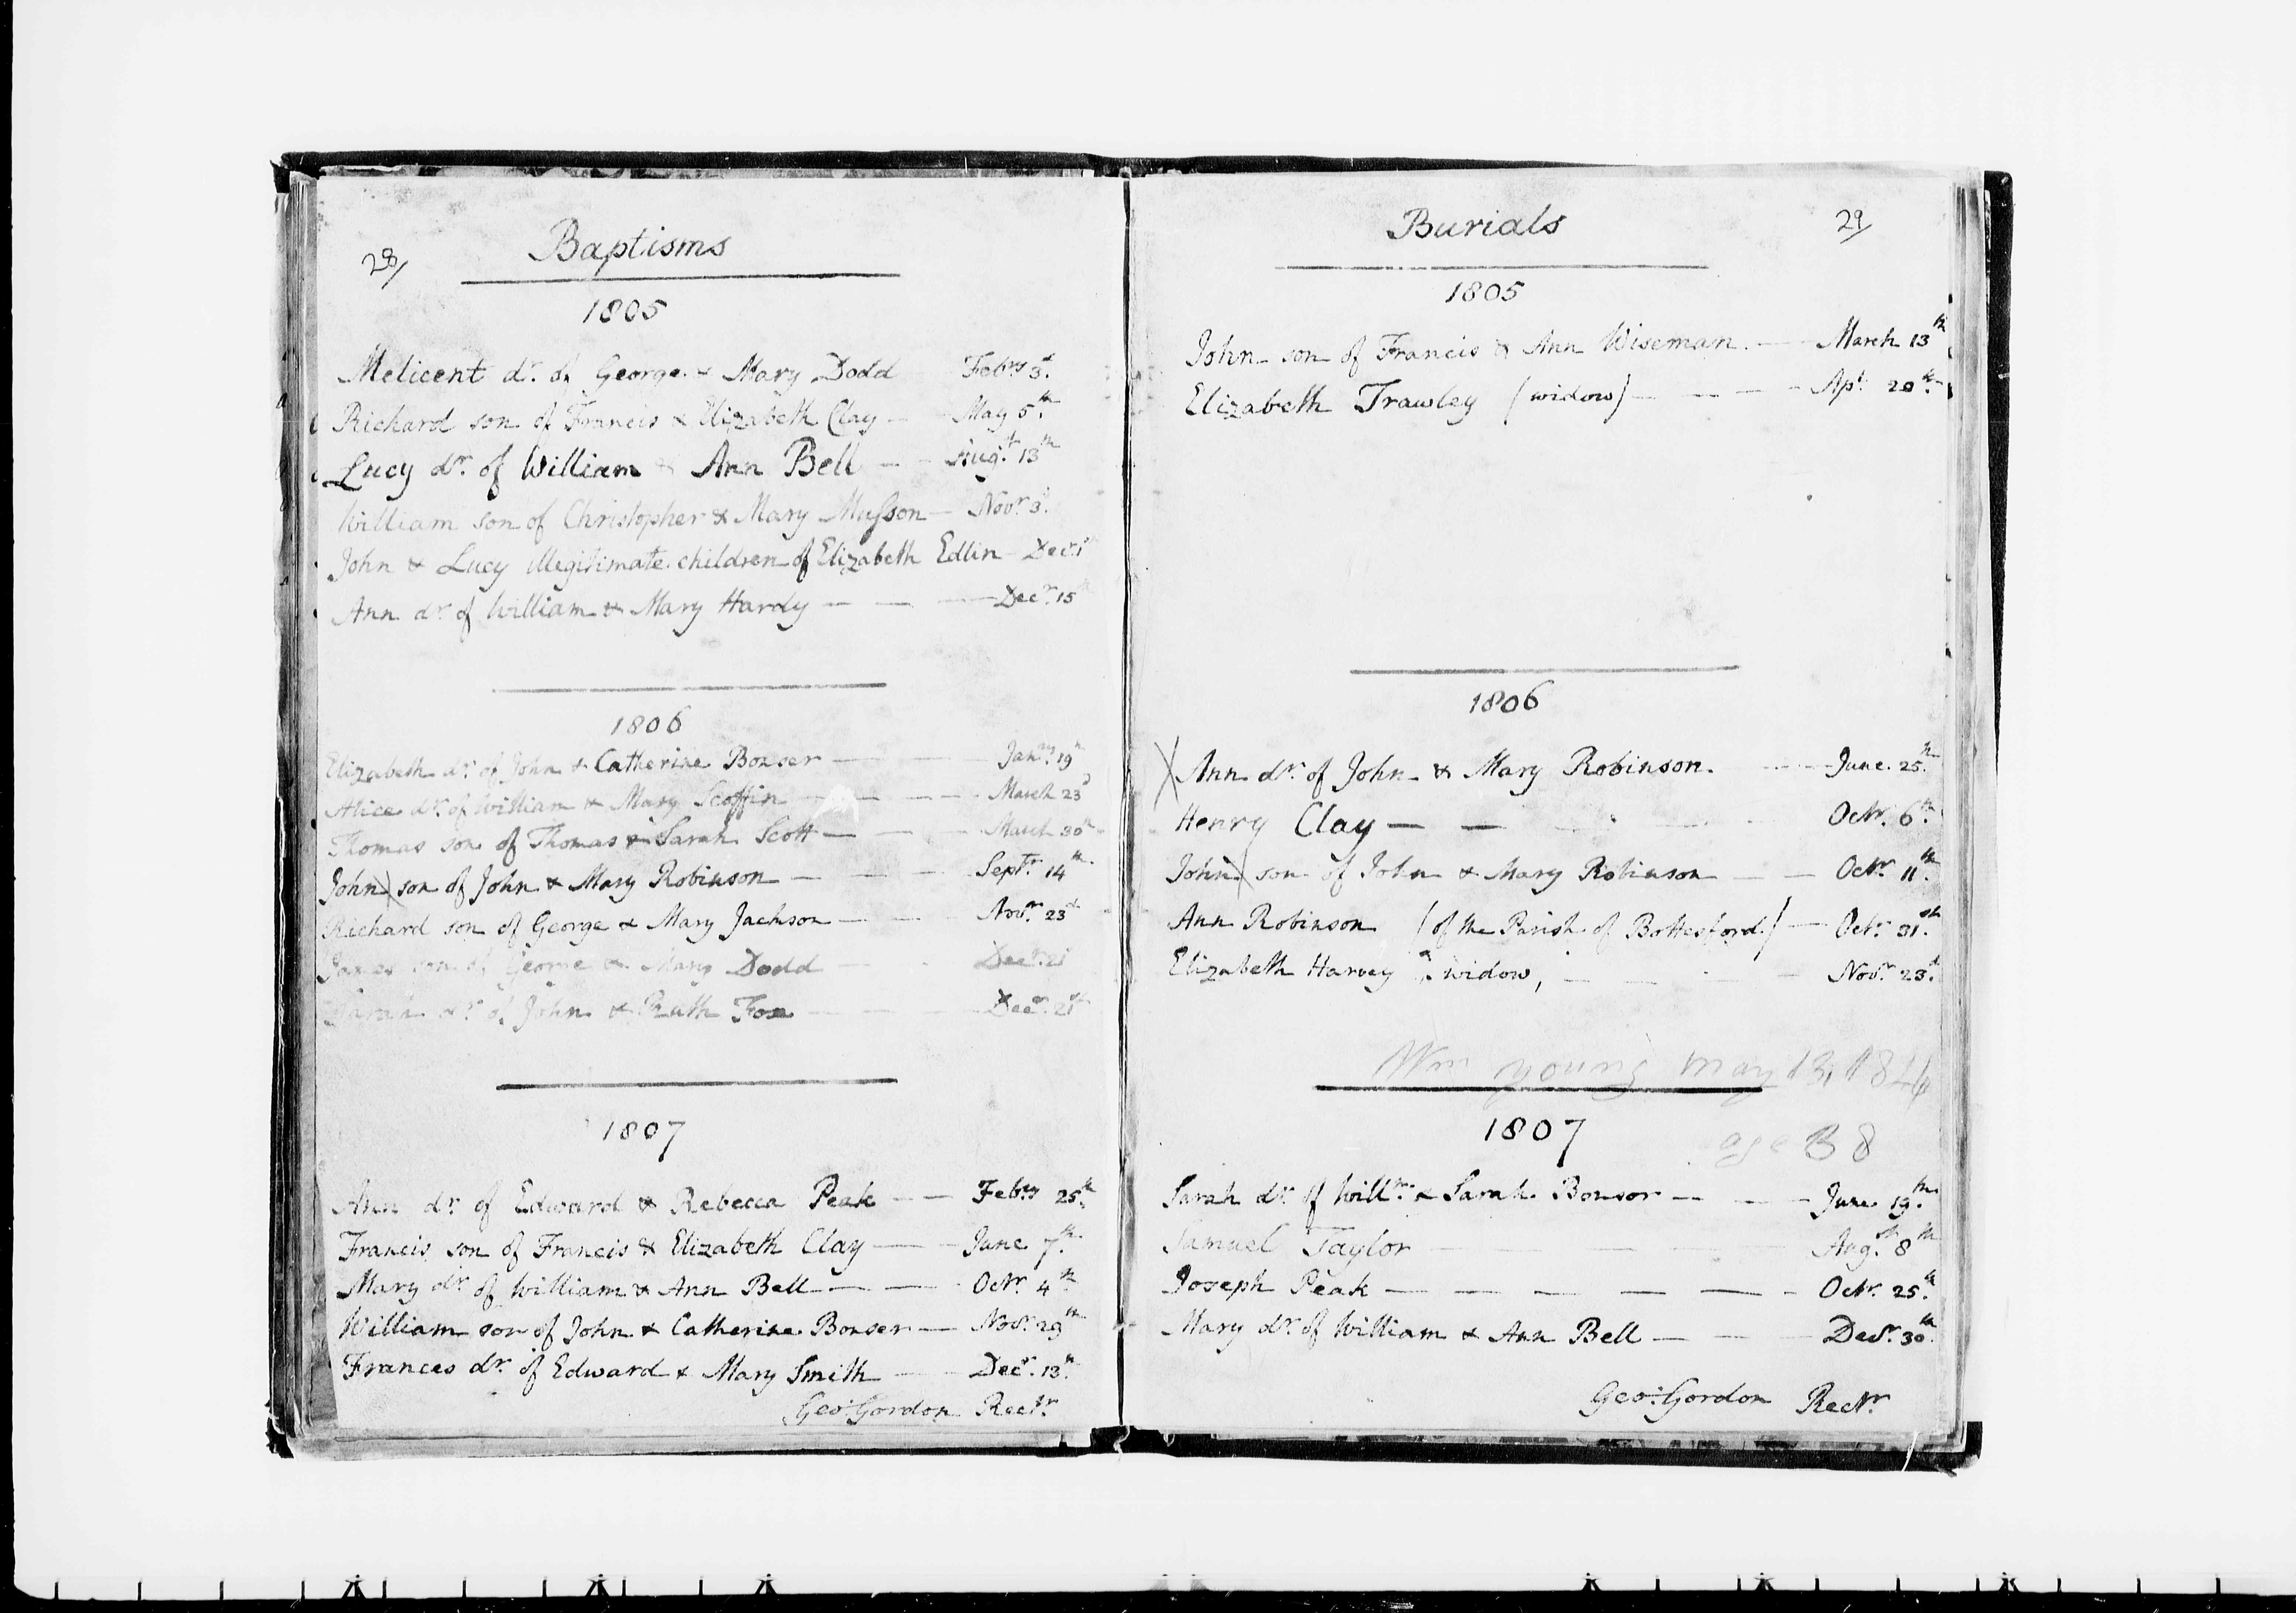 28/
Baptisms
1805
Melicent dr. of George & Mary Dodd Febry 3d.
Richard son of Francis & Elizabeth Clay — May 5th.
Lucy dr. of William & Ann Bell — Augst. 13th
William son of Christopher & Mary Muſson — Novr. 3d.
John & Lucy illegitimate children of Elizabeth Edlin — Decr. 1st
Ann dr. of William & Mary Hardy — — — Decr. 15th
1806
Elizabeth dr. of John & Catherine Bonser — — Janry. 19th
Alice dr. of William & Mary Scoffin — — — March 23d
Thomas son of Thomas & Sarah Scott — — — March 30th
John son of John & Mary Robinson — — — Septr. 14th.
Richard son of George & Mary Jackson — — Novr. 23d
James son of George & Mary Dodd — Decr. 21
Sarah dr. of John & Ruth Fox — — — Decr. 21st
1807
Ann dr. of Edward & Rebecca Peak — — Febry 25th.
Francis son of Francis & Elizabeth Clay — — June 7th.
Mary dr. of William & Ann Bell — — Octr. 4th
William son of John & Catherine Bonser — Novr. 29th
Frances dr. of Edward & Mary Smith — — Decr. 13th.
Geo: Gordon Rectr.
29/
Burials
1805
John son of Francis & Ann Wiseman. — March 13th
Elizabeth Trawley (widow) — — — Apl. 20th.
1806
X Ann dr. of John & Mary Robinson. — — June 25th.
Henry Clay — — Octr. 6th.
John son of John & Mary Robinson — — Octr. 11th.
Ann Robinson (of the Parish of Bottesford) — Octr. 31st.
Elizabeth Harvey widow, — Novr. 23d.
Wm young may 13, 1844
age 38
1807
Sarah dr. of Willm. & Sarah Bonsor — — June 19th.
Samuel Taylor — Augst. 8th
Joseph Peak — — — — — Octr. 25th.
Mary dr. of William & Ann Bell — — Decr. 30th.
Geo: Gordon Rectr.